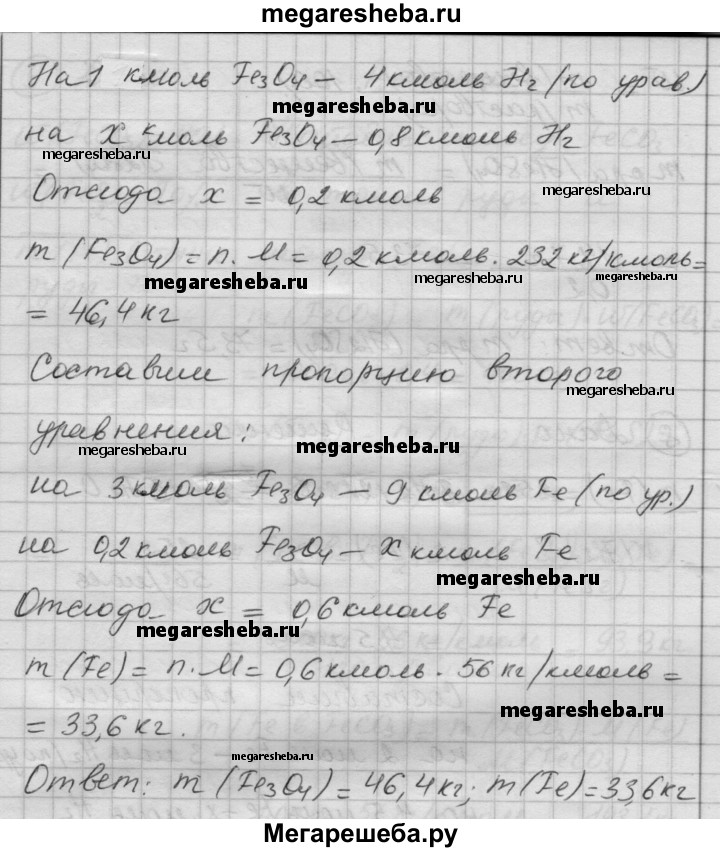 megaresheba.ru
На 1 кмоль Fe₃O₄ – 4 кмоль H₂ (по урав.)
megaresheba.ru
на x кмоль Fe₃O₄ – 0,8 кмоль H₂
megaresheba.ru
Отсюда x = 0,2 кмоль
megaresheba.ru
m (Fe₃O₄) = n · M = 0,2 кмоль · 232 кг/кмоль =
megaresheba.ru megaresheba.ru megaresheba.ru
= 46,4 кг
Составим пропорцию второго
megaresheba.ru
уравнения:
megaresheba.ru megaresheba.ru
на 3 кмоль Fe₃O₄ – 9 кмоль Fe (по ур.)
на 0,2 кмоль Fe₃O₄ – x кмоль Fe
megaresheba.ru
Отсюда x = 0,6 кмоль Fe
megaresheba.ru
m (Fe) = n · M = 0,6 кмоль · 56 кг/кмоль =
megaresheba.ru
= 33,6 кг.
megaresheba.ru
Ответ: m (Fe₃O₄) = 46,4 кг; m (Fe) = 33,6 кг
Мегарешеба.ру